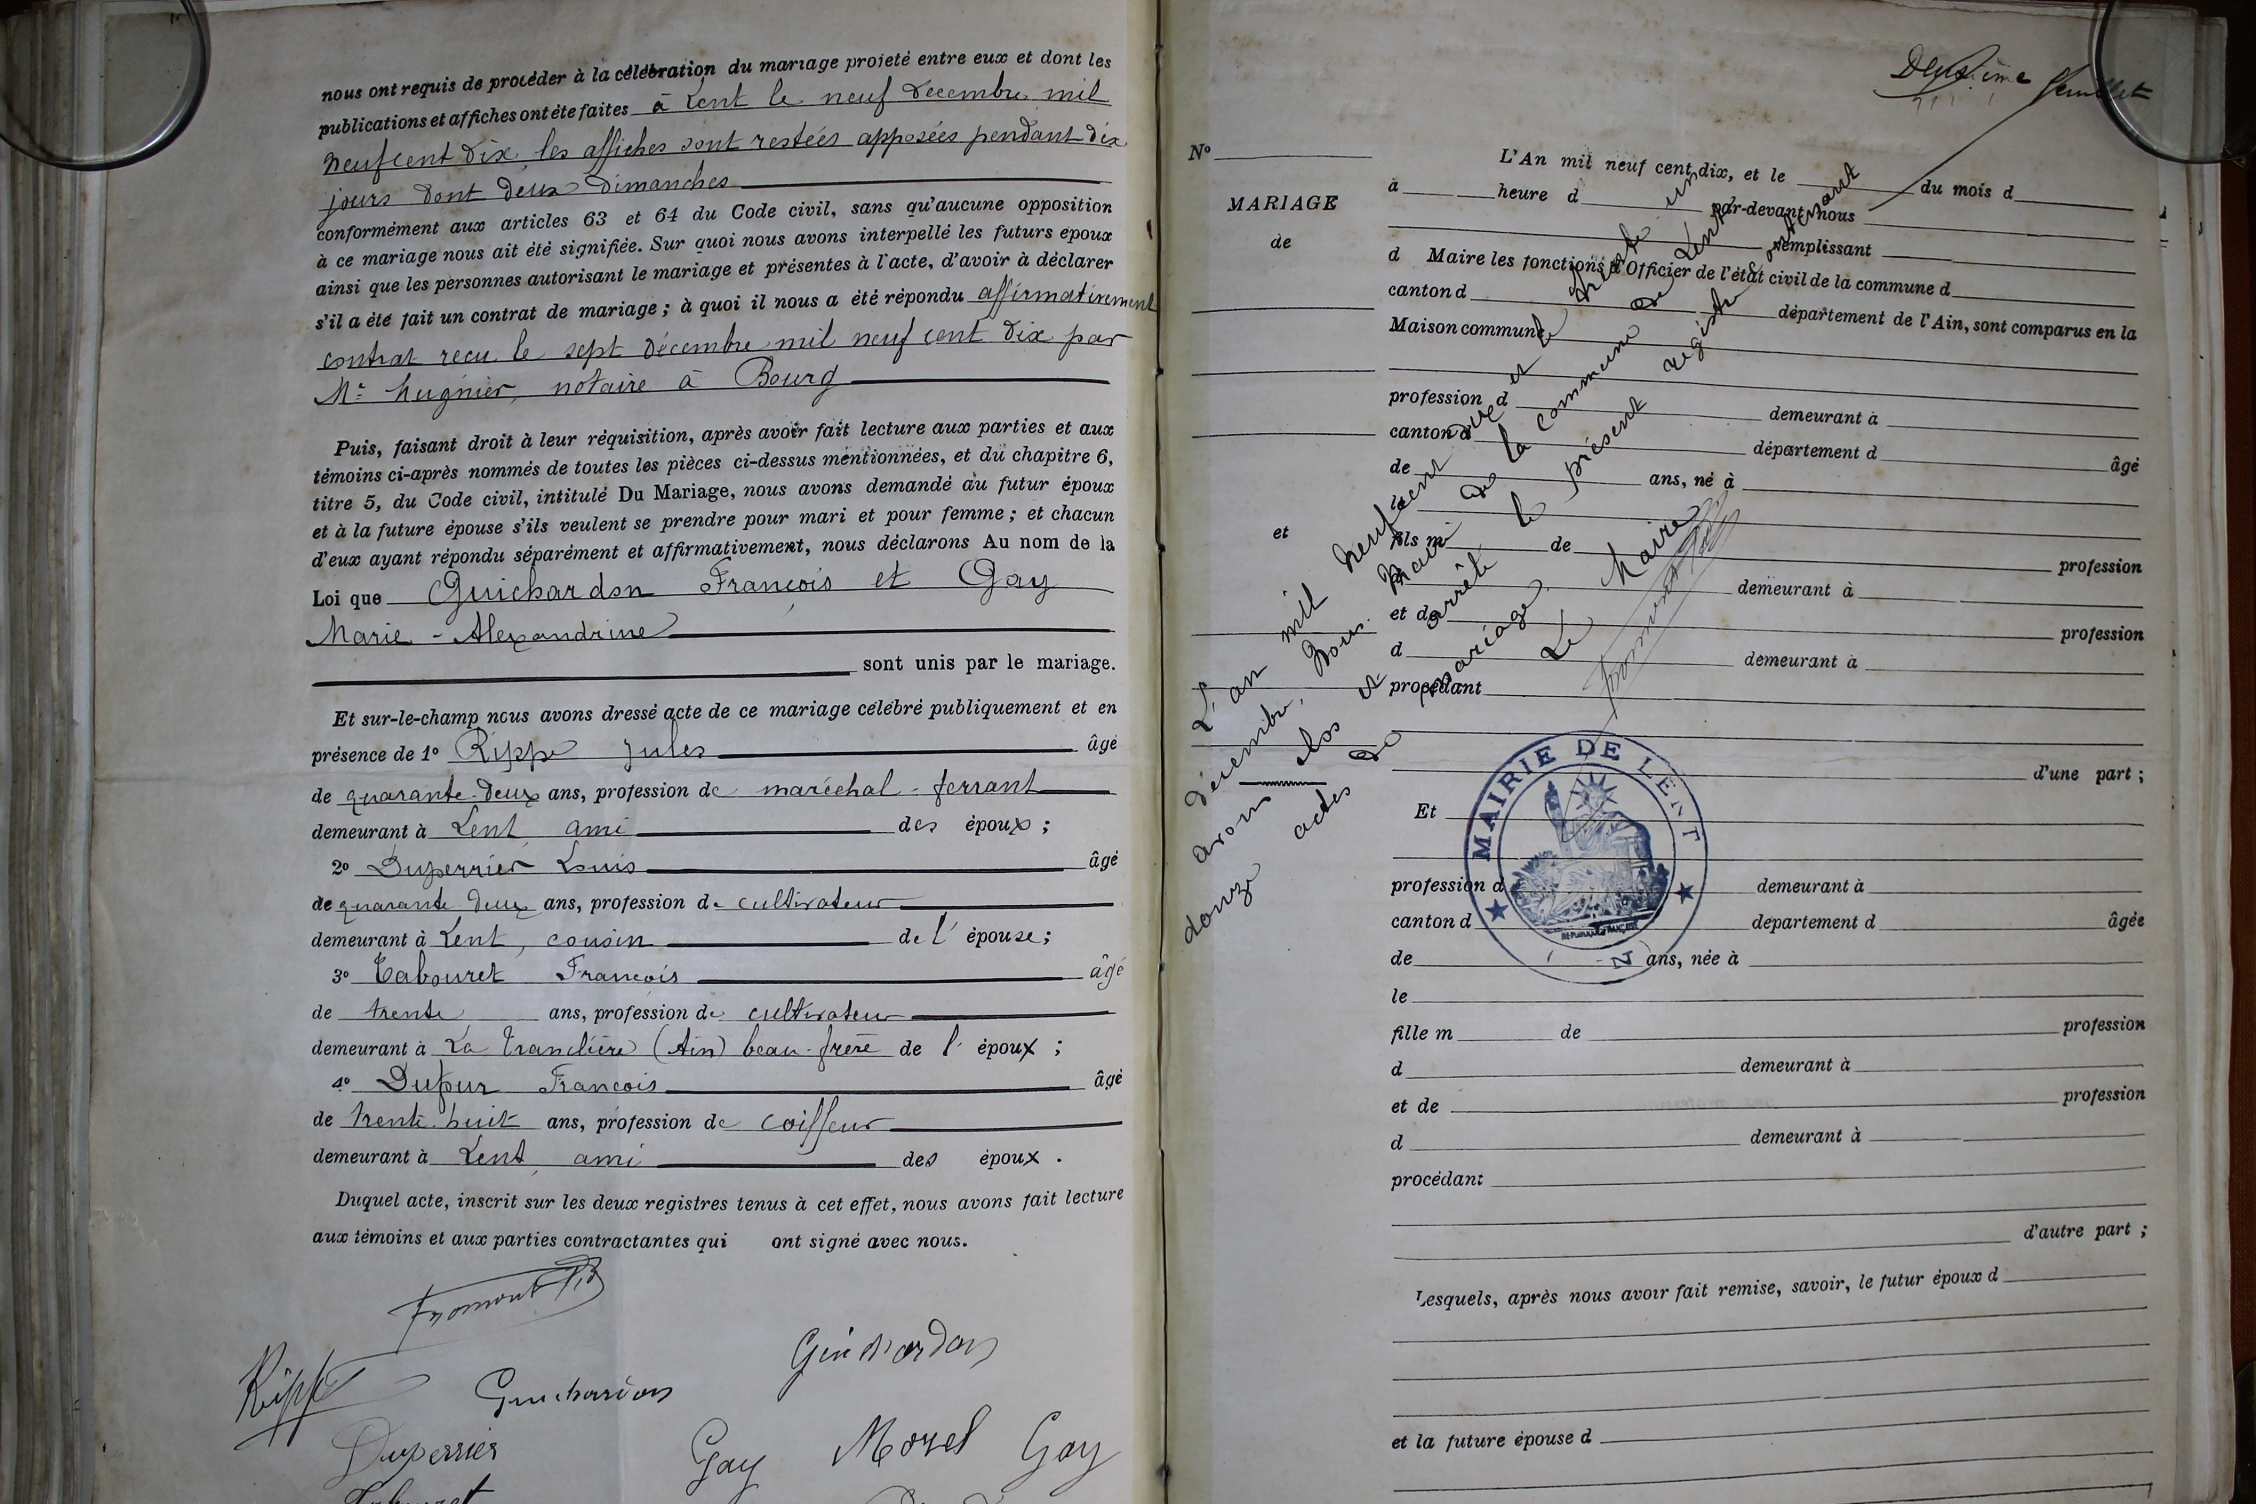 nous ont requis de procéder à la célébration du mariage projeté entre eux et dont les
publications et affiches ont été faites à Lent le neuf décembre mil
neuf cent dix, les affiches sont restées apposées pendant dix
jours dont deux dimanches
conformément aux articles 63 et 64 du Code civil, sans qu'aucune opposition
à ce mariage nous ait été signifiée. Sur quoi nous avons interpellé les futurs époux
ainsi que les personnes autorisant le mariage et présentes à l'acte, d'avoir à déclarer
s'il a été fait un contrat de mariage ; à quoi il nous a été répondu affirmativement
contrat reçu le sept décembre mil neuf cent dix par
Me hugnier, notaire à Bourg
Puis, faisant droit à leur réquisition, après avoir fait lecture aux parties et aux
témoins ci-après nommés de toutes les pièces ci-dessus mentionnées, et du chapitre 6,
titre 5, du Code civil, intitulé Du Mariage, nous avons demandé au futur époux
et à la future épouse s'ils veulent se prendre pour mari et pour femme ; et chacun
d'eux ayant répondu séparément et affirmativement, nous déclarons Au nom de la
Loi que Guichardon François et Gay
Marie - Alexandrine
sont unis par le mariage.
Et sur-le-champ nous avons dressé acte de ce mariage célébré publiquement et en
présence de 1º Rippe Jules âgé
de quarante-deux ans, profession de maréchal-ferrant
demeurant à Lent, ami des époux ;
2º Duperrier Louis âgé
de quarante deux ans, profession de cultivateur
demeurant à Lent, cousin de l'épouse ;
3º Tabouret François âgé
de trente ans, profession de cultivateur
demeurant à La Tranclière (Ain) beau-frère de l'époux ;
4º Dufour François âgé
de trente-huit ans, profession de coiffeur
demeurant à Lent, ami des époux .
Duquel acte, inscrit sur les deux registres tenus à cet effet, nous avons fait lecture
aux témoins et aux parties contractantes qui ont signé avec nous.
Fromont
Guichardon
Rippe
Guichardon
Duperrier
Gay Morel Gay
Tabouret
Deuxième feuillet
Nº
MARIAGE
de
et
L'An mil neuf cent dix, et le du mois d
à heure d par-devant nous
remplissant
d Maire les fonctions d'Officier de l'état civil de la commune d
canton d département de l'Ain, sont comparus en la
Maison commune
profession d demeurant à
canton d département d
de ans, né à âgé
le
fils m de profession
d demeurant à
et de profession
d demeurant à
procédant
d'une part ;
Et
profession d demeurant à
canton d département d âgée
de ans, née à
le
fille m de profession
d demeurant à
et de profession
d demeurant à
procédant
d'autre part ;
Lesquels, après nous avoir fait remise, savoir, le futur époux d
et la future épouse d
L'an mil neuf cent dix et le trente un
décembre, Nous Maire de la commune de Lent
avons clos et arrêté le présent registre contenant
douze actes de mariage.
Le Maire
Fromont
MAIRIE DE LENT
RÉPUBLIQUE FRANÇAISE